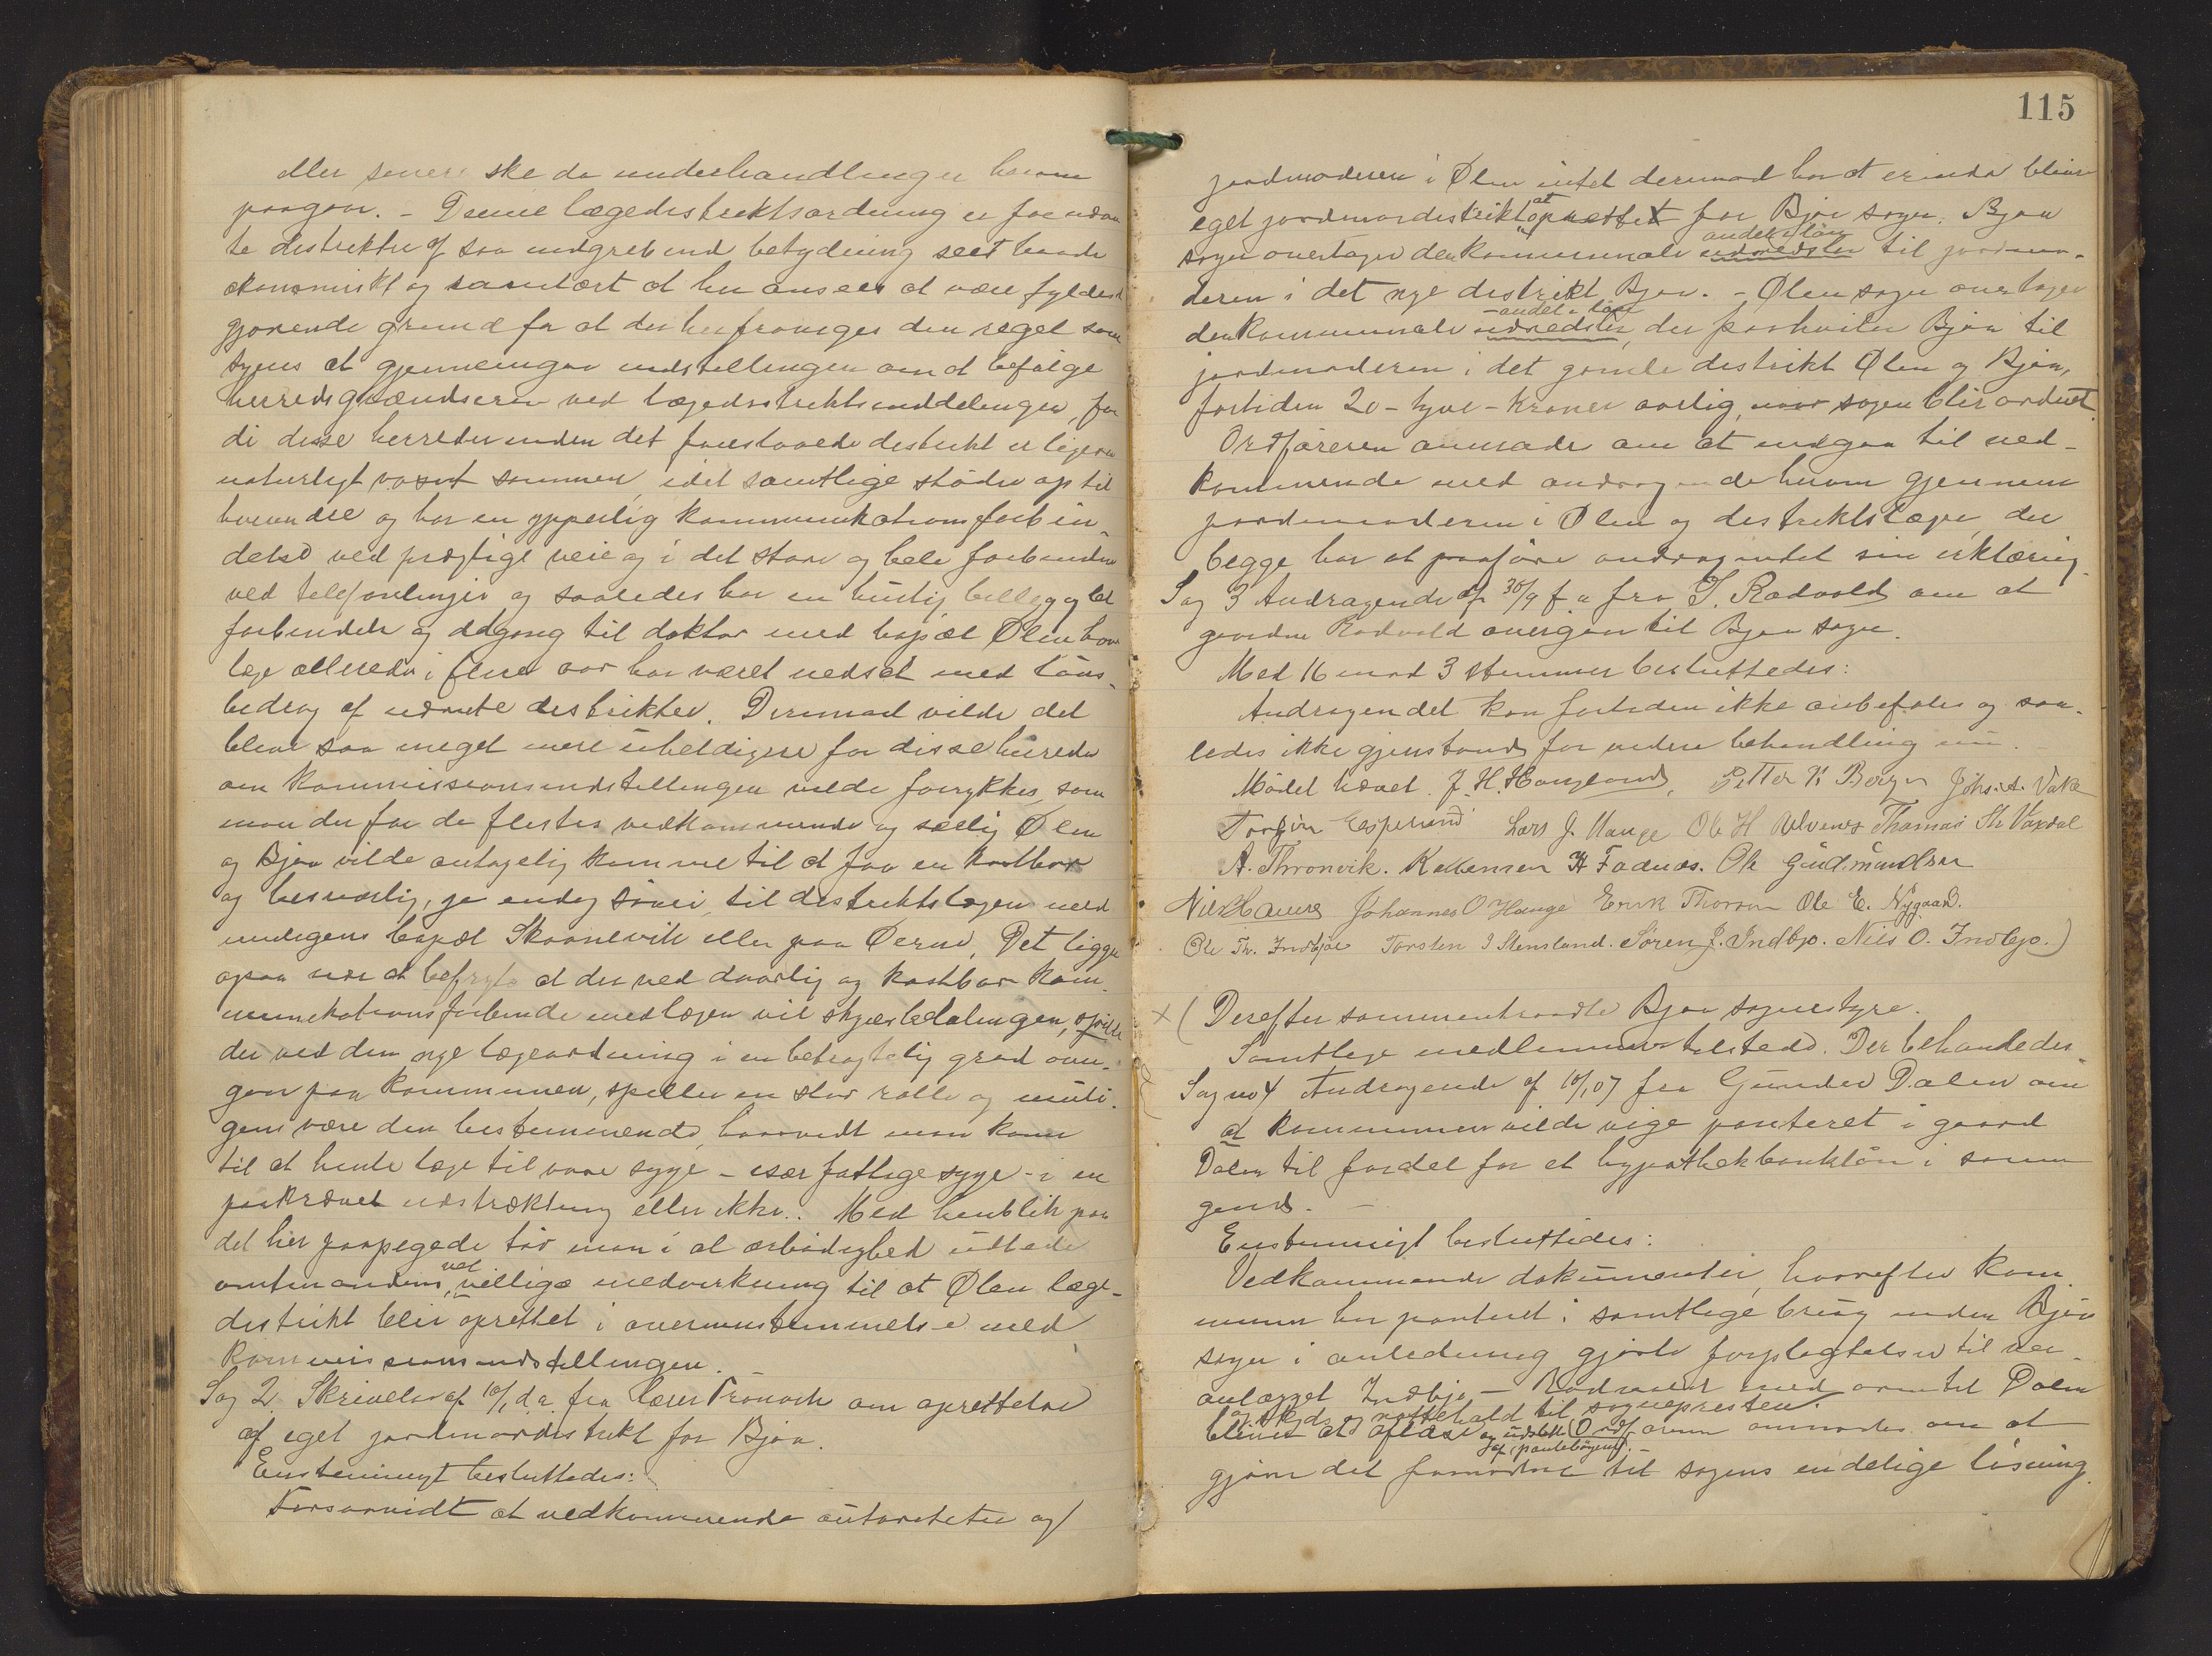 eller senere ske da underhandlinger herom
paagaar. - Denne lægedistriktsordning er for nævn
te distrikter af saa indgribende betydning seet baade
økonomiskt og sanitært at her ansees at være fyldest
gjørende grund for at der her fraviges den regel som
synes at gjennemgaa indstillingen om at befølge
herredsgrændserne ved lægedistriktsinddelingen, for
di disse herreder inden det foreslaaede distrikt er ligesom
naturligt voxet sammen, idet samtlige støder op til
hverandre og har en ypperlig kommunikationsforbin-
delse ved prægtige veie og i det store og hele forbundne
ved telefonlinjer og saaledes har en hurtig billig og let
forbindelse og adgang til doktor med bopæl Ølen hvor
læge allerede i flere aar har været nedsat med løns-
bidrag af nævnte distrikter. Derimod vilde det
blive saa meget mere uheldigere for disse herreder
om kommissionsindstillingen vilde forrykkes, som
man der for de flestes vedkommende og særlig Ølen
og Bjoa vilde antagelig komme til at faa en kostbar
og besværlig, ja endog sjøvei, til distriktslægen med
bopæl Skaanevik eller paa Øerne. Det ligger
ogsaa nær at befrygte at der ved daarlig og kostbar kom-
munikationsforbinde med lægen vil skydsbetalingen,
der ved den nye lægeordning i en betragtelig grad over-
gaar paa kommunen, spiller en stor rolle og muli-
gens være den bestemmende, hvorvidt man kom
til at hente læge til vore syge - især fattige syge - i en
paakrævet udstrækning eller ikke. Med henblik paa
det her paapegede tør man i al ærbødighed udbede
amtmandens velvillige medvirkning til at Ølen læge-
distrikt blir oprettet i overensstemmelse med
kommissionsindstillingen.
Sag 2 Skrivelse af 10/1 d.a. fra lærer Tronvik om oprettelse
af eget jordmordistrikt for Bjoa.
Enstemmigt besluttedes:
Forsaavidt at vedkommende autoriteter og
115
jordmoderen i Ølen intet derimod har at erindre blir
eget jordmordistrikt at oprettet for Bjoa sogn. Bjoa
andel i løn
sogn overtager den kommunale udredsler til jordmo-
deren i det nye distrikt Bjoa. - Ølen sogn overtager
- andel i løn
den kommunale udredsler, der paahviler Bjoa til
jordmoderen i det gamle distrikt Ølen og Bjoa,
fortiden 20 - tyve - kroner aarlig, naar sagen blir ordnet.
Ordføreren anmodes om at indgaa til ved-
kommende med andragende herom gjennem
jordmoderen i Ølen og distriktslæge, der
begge har at paaføre andragendet sin erklæring.
Sag 3 Andragende af 30/9 f.a fra T. Rødvold om at
gaarden Rødvold overgaar til Bjoa sogn.
Med 16 mod 3 stemmer besluttedes:
Andragendet kan fortiden ikke anbefales og saa-
ledes ikke gjenstand for videre behandling nu.
Mødet hævet. J. H. Haugland, Petter K. Berge Johs. A. Vake
Torgier Espeland Lars J. Hauge Ole H Thomas Th Vaxdal
A. Thronvik. K H Fadnæs. Ole Gudmundsen
Nils Johannes O Hauge Erik Ole E. Nygaard.
Ole Th. Indbjoe Torsten I Stensland. Søren J. Indbjo. Nils O. Indbjo.)
x ( Derefter sammentraadte Bjoa sognestyre.
Samtlige medlemmer tilstede. Der behandledes
Sag no 4 Andragende af 10/1 07 fra Gunder Dalen om
at kommunen vilde vige panteret i gaard
Dalen til fordel for et hypothekbanklån i samme
gaard. -
Enstemmigt besluttedes:
Vedkommende dokumenter, hvorefter kom
munen har panteret i samtlige brug inden Bjoa
sogn i anledning gjorte forpligtelser til vei-
anlægget Indbjo - Rødvold med armtil Dalen
og skyds og nattehold til sognepresten.
bliver at aflæse og udslette Ordføreren anmodes om at
af pantebøgene.
gjøre det fornødne til sagens endelige løsning.